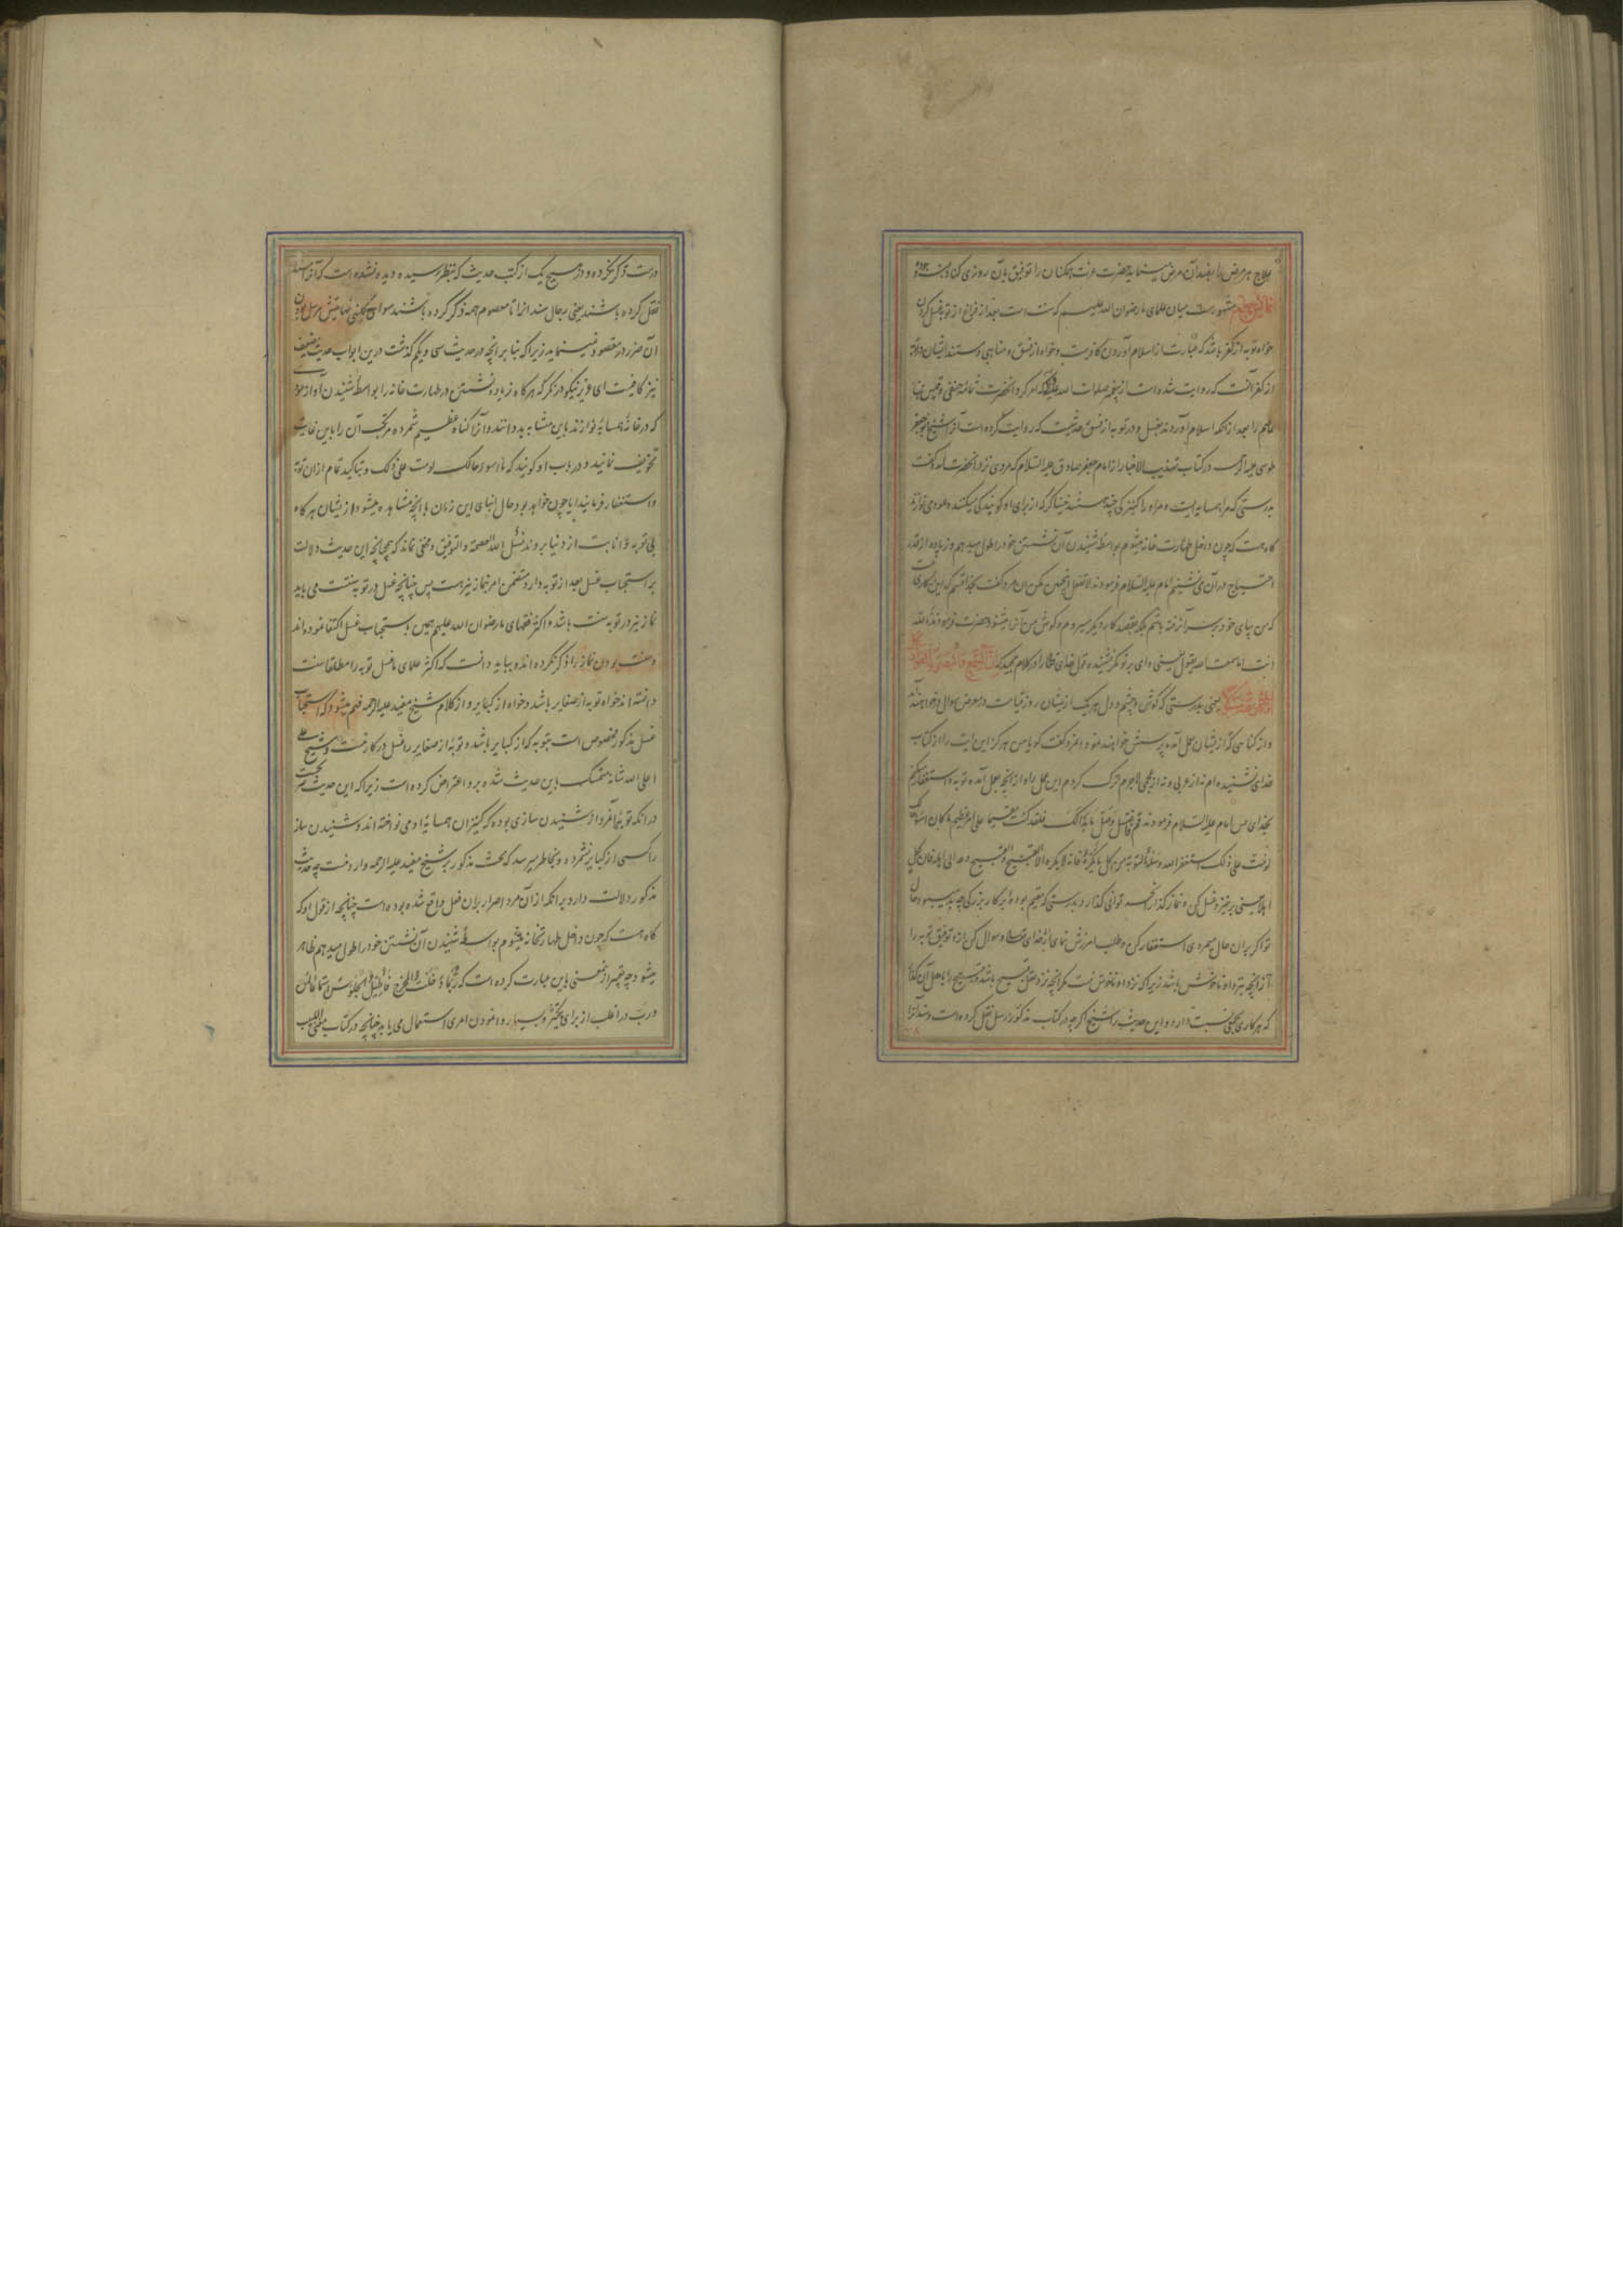 علاج هر مرض را بضد آن مرض مینماید حضرت عزت همکنان را توفیق بآن روزی کناد
مشهورست میان علمای ما رضوان الله علیهم که سنت است بعد از فراغ از توبه غسل کردن
خواه توبه از کفر باشد که عبارت از اسلام آوردن کافرست و خواه از فسق و مناهی و مستند ایشان در توبه
از کفر آنست که روایت شده است از پیغمبر صلوات الله علیه که امر کرد آنحضرت ثمامه حنفی و قیس بن
عاصم را بعد از آنکه اسلام آوردند بغسل و در توبه از فسق حدیثیست که روایت کرده است آنرا شیخ ابو جعفر
طوسی علیه الرحمه در کتاب تهذیب الاخبار از امام جعفر صادق علیه السلام که مردی نزد آنحضرت آمد و گفت
بدرستی که مرا همسایه ایست و مر او را کنیزکی چند هستند غناگر که از برای او گویندگی میکنند و عود می نوازند
گاه هست که چون داخل طهارت خانه میشوم بواسطه شنیدن آن نشستن خود را طول میدهم و زیاده از قدر
احتیاج در آن می نشینم امام علیه السلام فرمودند لا تفعل یعنی چنین مکن آن مرد گفت بخدا قسم که این کاری
که من بپای خود بر سر آن رفته باشم بلکه بقصد کار دیگر میروم و گوش من آنرا میشنود حضرت فرمودند تالله
انت اما سمعت الله یقول یعنی وای بر تو مگر نشنیده قول خدای تعالی را در کلام مجید که ان السمع و البصر و الفؤاد
یعنی بدرستی که گوش و چشم و دل هر یک از ایشان روز قیامت در معرض سوال در خواهند آمد
و از گناهی که از ایشان بعمل آمده پرسش خواهند نمود آنمرد گفت گویا من هرگز این آیت را از کتاب
خدای نشنیده ام نه از عربی و نه از عجمی لاجرم ترک کردم این عمل را و از آنچه بعمل آمده توبه و استغفار میکنم
بخدای پس امام علیه السلام فرمودند قم فاغتسل و صل ما بدا لک فلقد کنت مقیما علی امر عظیم ما کان اسوء حالک
لو مت علی ذلک استغفر الله و سله التوبه من کل ما یکره فانه لا یکره الا القبیح و القبیح دعه الی اهله فان لکل
اهلا یعنی برخیز و غسل کن و نماز گذار آنچه توانی گذارد بدرستی که مقیم بوده بر کار بزرگی چه بد میبود حال
تو اگر بر آن حال میمردی استغفار کن و طلب آمرزش نمای از خدای تعالی و سوال کن ازو توفیق توبه را
از آنچه نزد او ناخوش باشد زیرا که نزد او ناخوش نیست مگر آنچه نزد عقل قبیح باشد و قبیح را باهل آن گذار
که هر کاری بجمعی نسبت دارد و این حدیث را شیخ اگر چه در کتاب مذکور مرسل نقل کرده است و سند آنرا
درست ذکر نکرده و در هیچ یک از کتب حدیث که بنظر رسیده دیده نشده است که آنرا مسند
نقل کرده باشند یعنی رجال سند او را تا معصوم همه ذکر کرده باشند سوای کلینی اما مرسل بودن
آن ضرر در مقصود نمینماید زیرا که بنا بر آنچه در حدیث سی و یکم گذشت درین ابواب حدیث ضعیف
نیز کافیست ای عزیز نیکو در نگر که هر گاه زیاده نشستن در طهارت خانه را بواسطه شنیدن آواز عود
که در خانه همسایه نوازند باین مثابه بد دانند و آنرا گناه عظیم شمرده مرتکب آن را باین غایت
تخویف نمایند و در باب او گویند که ما اسوء حالک لو مت علی ذلک و بتاکید تمام از آن توبه
و استغفار فرمایند آیا چون خواهد بود حال ابنای این زمان با آنچه مشاهده میشود از ایشان هر گاه
بی توبه و انابت از دنیا بروند نسئل الله العصمة و التوفیق و مخفی نماند که همچنانچه این حدیث دلالت
بر استحباب غسل بعد از توبه دارد متضمن امر بنماز نیز هست پس چنانچه غسل در توبه سنت می باید
نماز نیز در توبه سنت باشد و اکثر فقهای ما رضوان الله علیهم همین باستحباب غسل اکتفا نموده اند
و سنت بودن نماز را ذکر نکرده اند و بباید دانست که اکثر علمای ما غسل توبه را مطلقا سنت
دانسته اند خواه توبه از صغایر باشد و خواه از کبایر و از کلام شیخ مفید علیه الرحمه فهم میشود که استحباب
غسل مذکور مخصوص است بتوبه که از کبایر باشد و توبه از صغایر را غسل در کار نیست و شیخ علی
اعلی الله شانه متمسک باین حدیث شده برو اعتراض کرده است زیرا که این حدیث صریحست
در آنکه توبه آنمرد از شنیدن سازی بوده که کنیزان همسایه او می نواخته اند و شنیدن ساز
را کسی از کبایر نشمرده و بخاطر میرسد که بحث مذکور بر شیخ مفید علیه الرحمه وارد نیست چه حدیث
مذکور دلالت دارد بر آنکه از آن مرد اصرار بر آن فعل واقع شده بوده است چنانچه از قول او که
گاه هست که چون داخل طهارتخانه میشوم بواسطه شنیدن آن نشستن خود را طول میدهم ظاهر
میشود چه تعبیر از آن معنی باین عبارت کرده است که ربما دخلت المخرج فاطیل الجلوس استماعا منی
و رب در اغلب از برای تکثیر و بسیار وا نمودن امری استعمال می یابد چنانچه در کتاب مغنی اللبیب